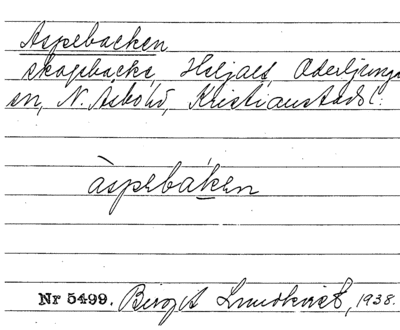 Aspebacken
skogsbacke, Heljalt, Oderljunga
sn, N. Åsbo hd, Kristianstads l.
àspebáken
Nr 5499. Birgit Lundkvist, 1938.